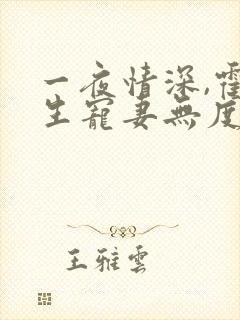 一夜情深,霍
生寵妻無度
王雅雲